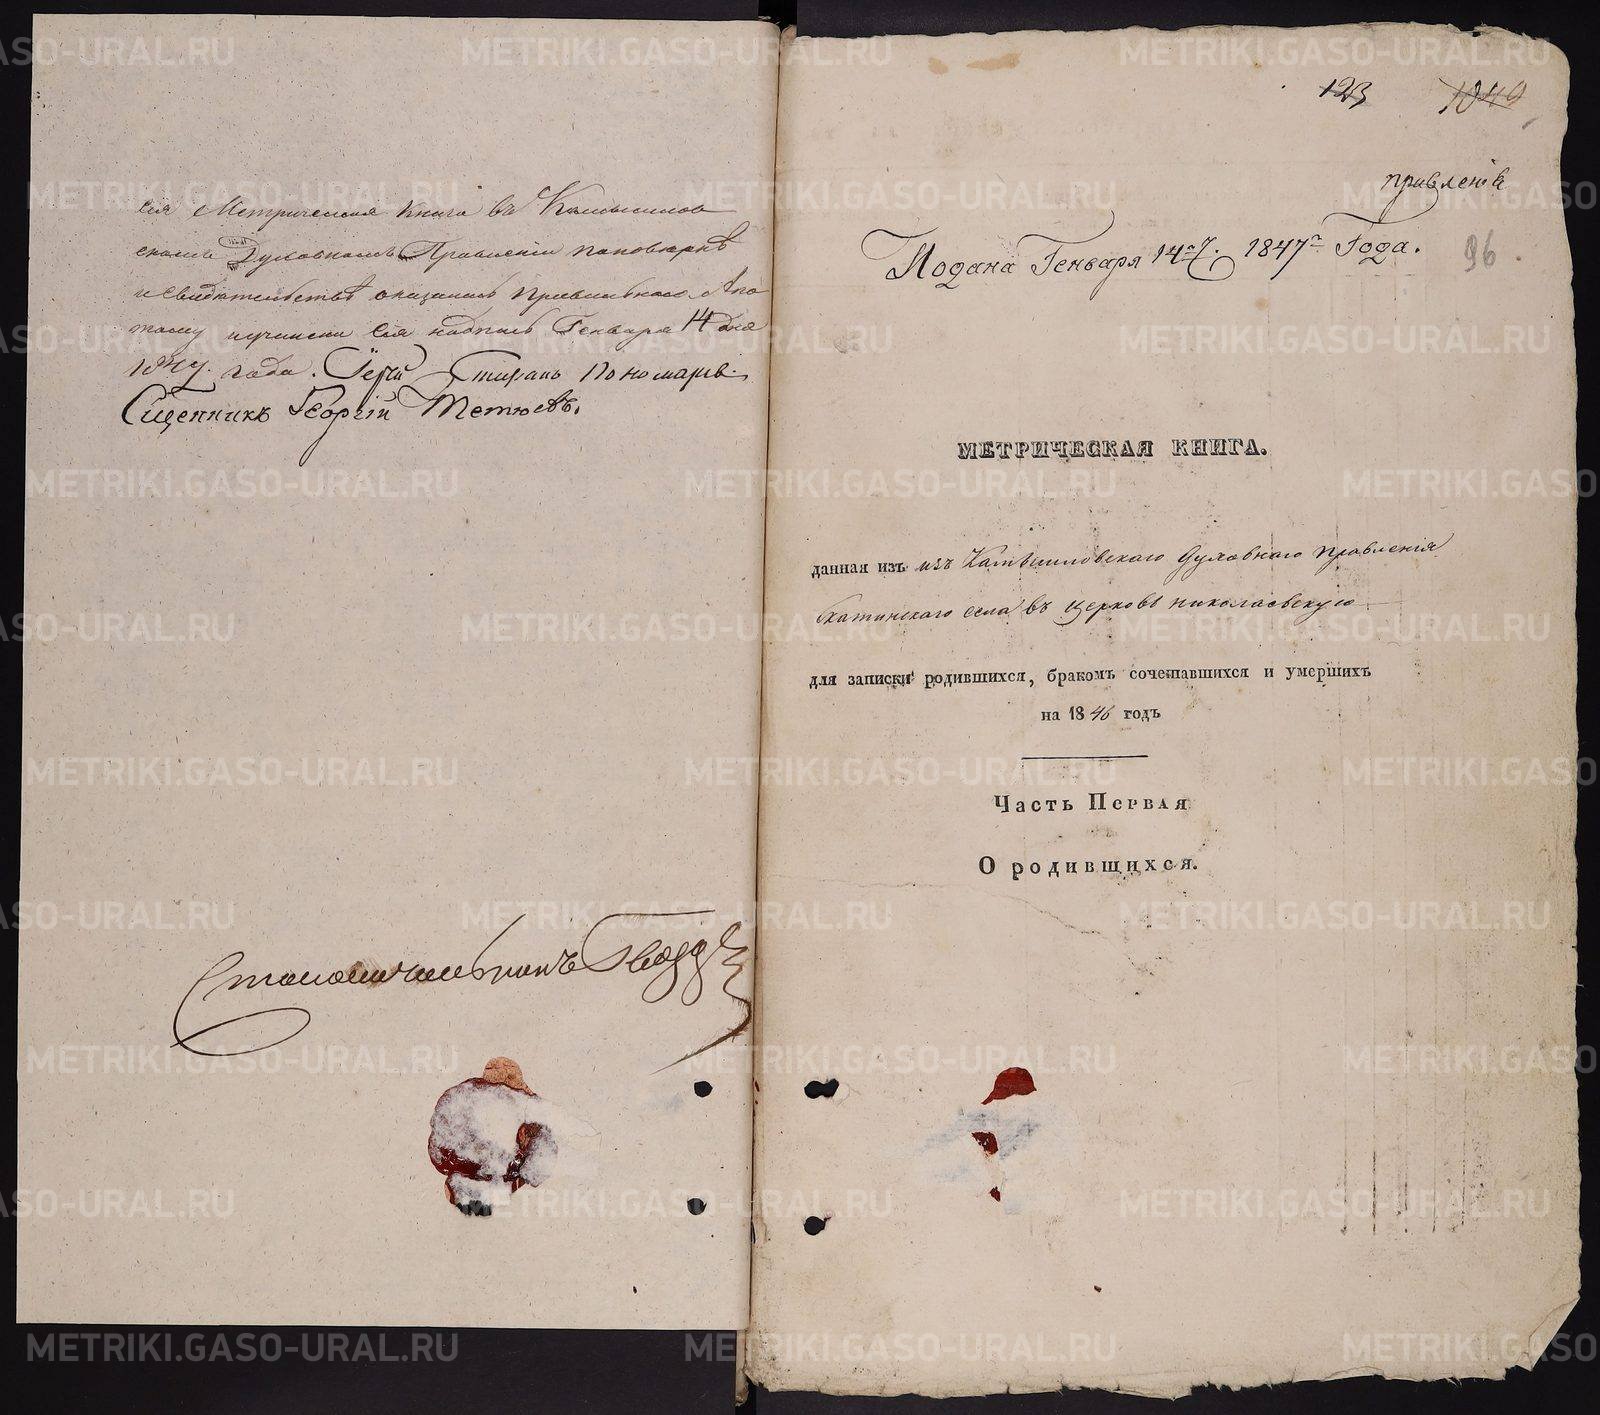 сія Метрическая книга въ Камышлов
скомъ Духовномъ Правленіи по повѣркѣ
и свидѣтельствѣ оказалась правильною. А по
тому и учинена сія надпись Генваря 14 дня
1847. года. Іерей Стефанъ Пономаревъ.
Сщенникъ Георгій Тетюевъ.
123
1040
правленіе
Подана Генваря 14го 1847го Года.
96
МЕТРИЧЕСКАЯ КНИГА.
данная изъ изъ Камышловскаго духовнаго правленія
Скатинскаго села въ церковь николаевскую
для записки родившихся, бракомъ сочетавшихся и умершихъ
на 1846 годъ
Часть Первая
О родившихся.
METRIKI.GASO-URAL.RU